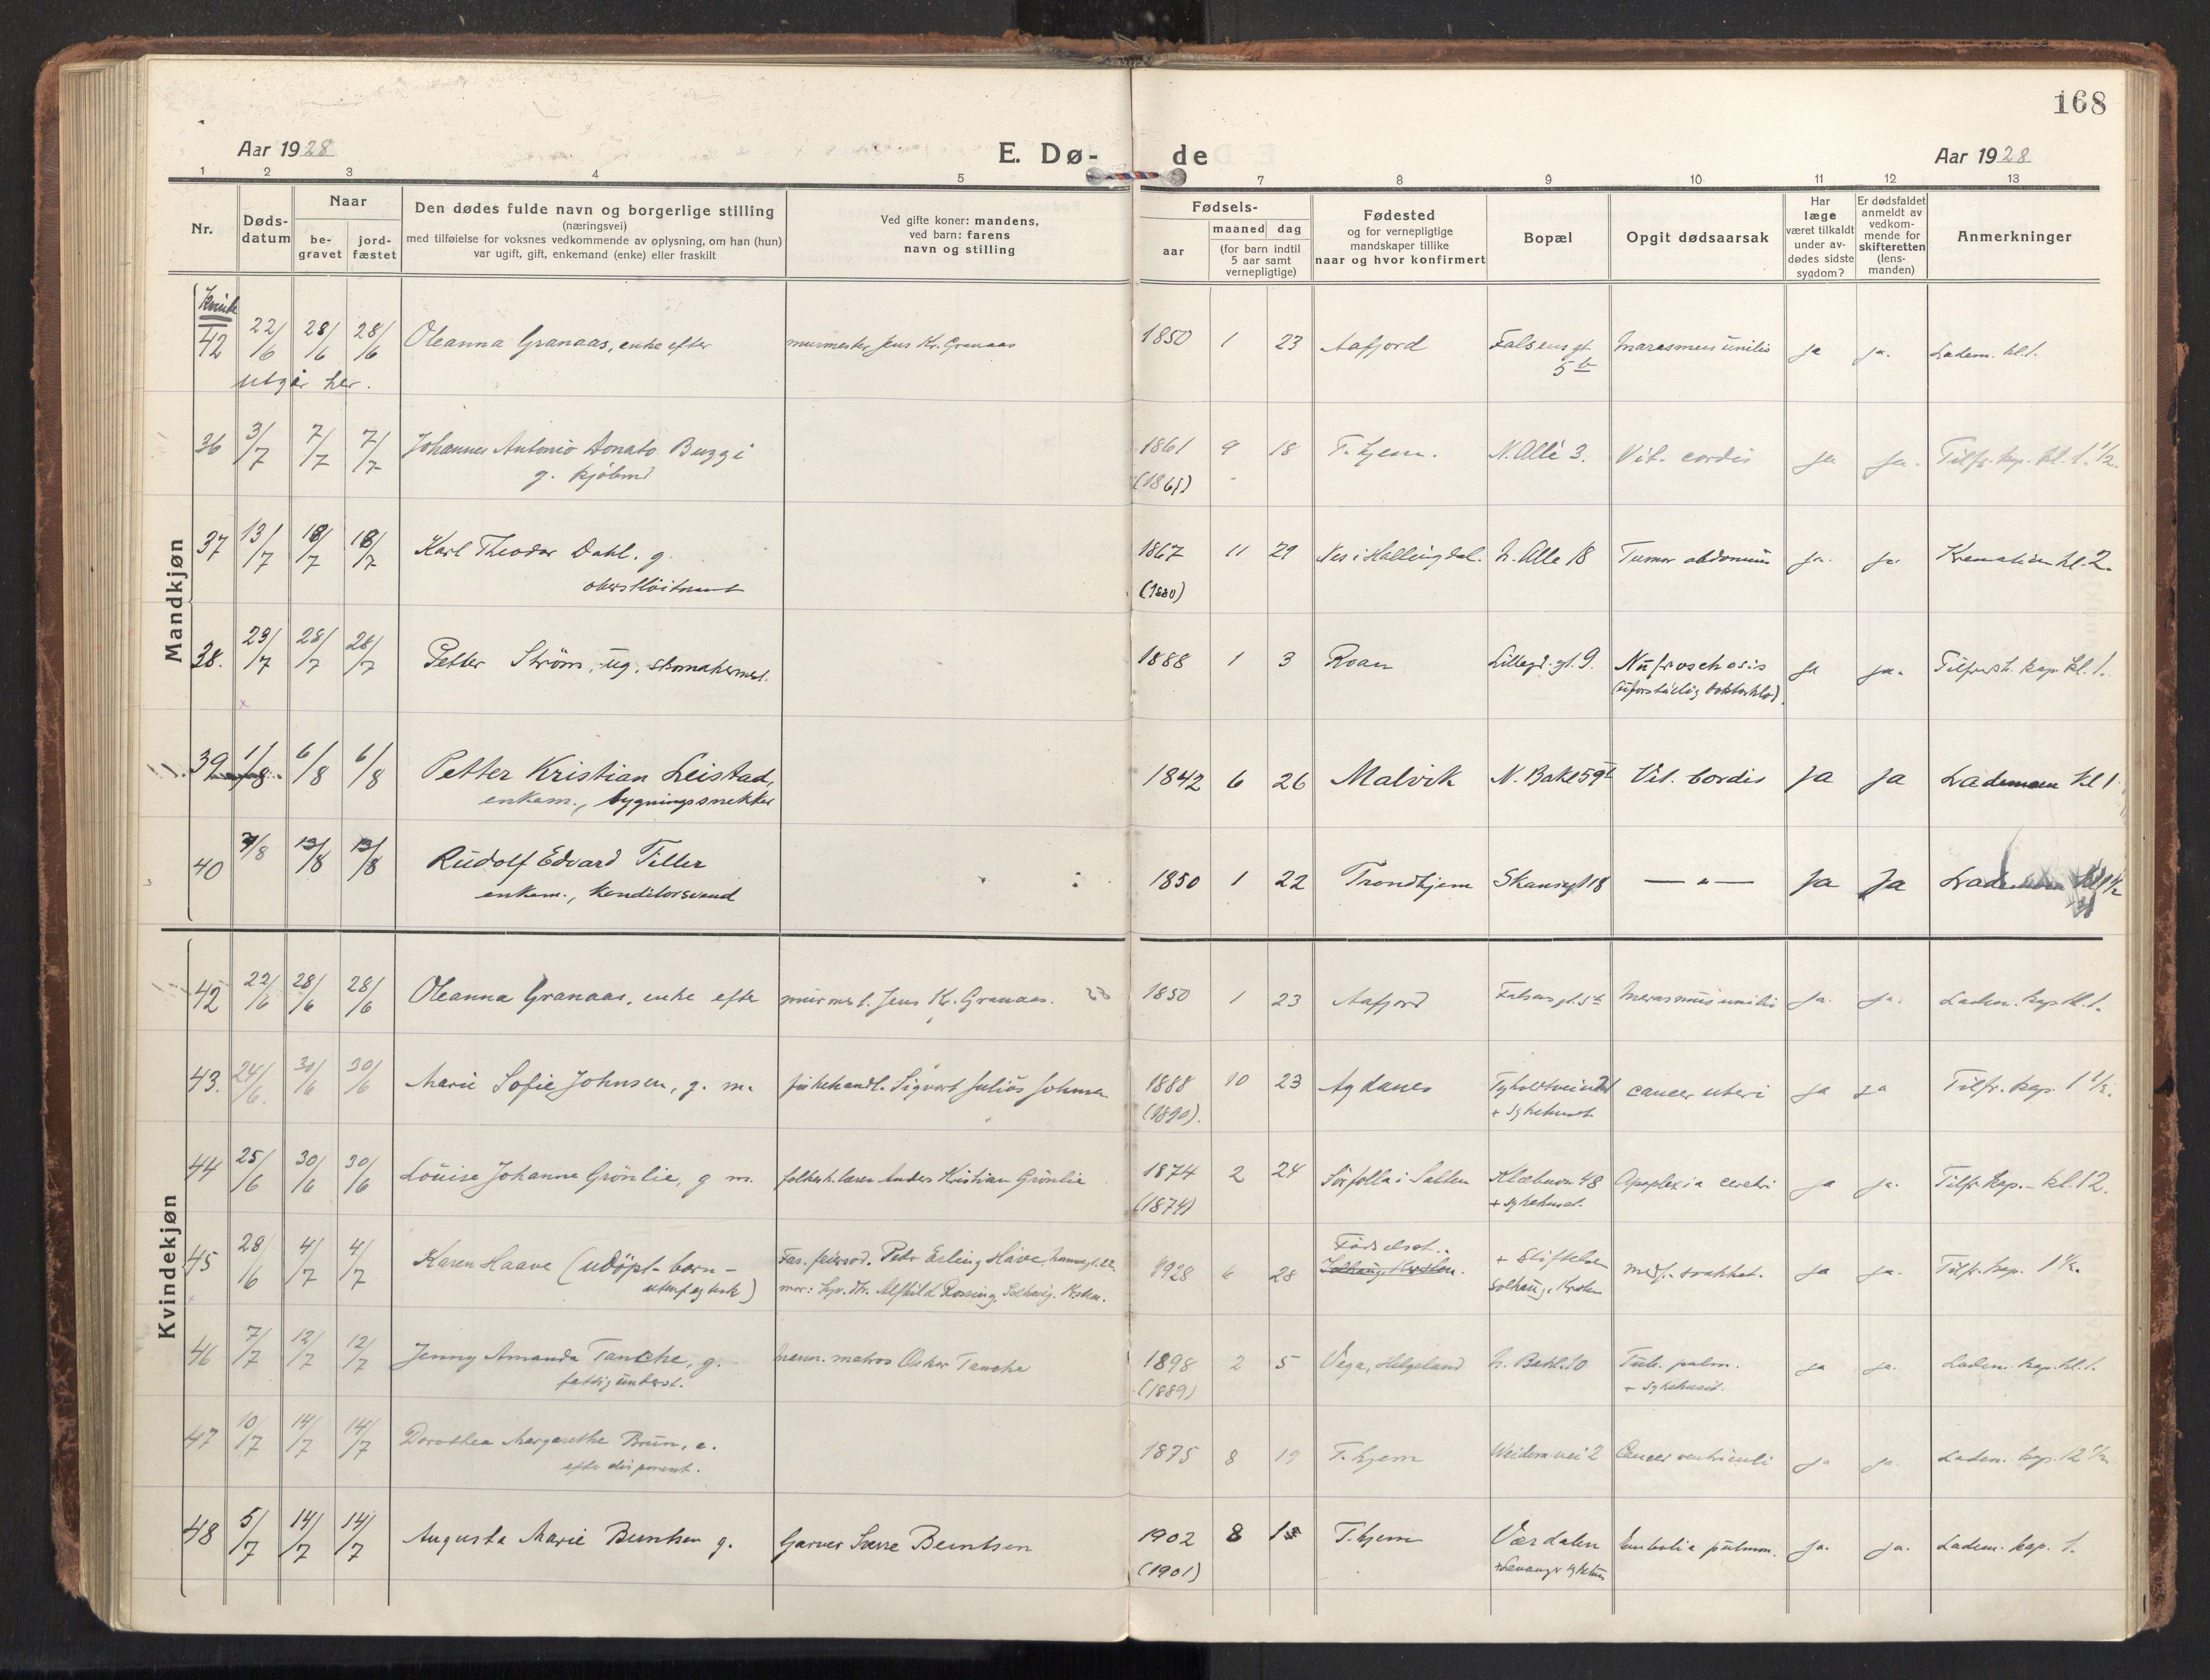 168
Aar 1928
E. Dø-
de
Aar 1928
1 2 3 4 5 7 8 9 10 11 12 13
Nr.
Døds-
datum
Naar
be-
gravet
jord-
fæstet
Den dødes fulde navn og borgerlige stilling
(næringsvei)
med tilføielse for voksnes vedkommende av oplysning, om han (hun)
var ugift, gift, enkemand (enke) eller fraskilt
Ved gifte koner: mandens,
ved barn: farens
navn og stilling
Fødsels-
aar
maaned dag
(for barn indtil
5 aar samt
vernepligtige)
Fødested
og for vernepligtige
mandskaper tillike
naar og hvor konfirmert
Bopæl
Opgit dødsaarsak
Har
læge
været tilkaldt
under av-
dødes sidste
sygdom?
Er dødsfaldet
anmeldt av
vedkom-
mende for
skifteretten
(lens-
manden)
Anmerkninger
Mandkjøn
Kvinde
42 22/6 28/6 28/6 Oleanna Granaas, enke efter murmester Jens Kr. Granaas 1850 1 23 Aafjord Falsens gt. Marasmus ja ja. Ladem. kl. 1.
5 b
utgår her.
36 3/7 7/7 7/7 Johannes Antonio Donato Buzzi 1861 9 18 T.hjem. N. Allé 3. Vit. cordis ja ja. Tilfr. kap. kl. 1 1/2.
g. kjøbmd
37 13/7 18/7 18/7 Karl Theodor Dahl. g. 1867 11 29 Nes i Hallingdal. N. Alle 18 Tumor abdominis ja. ja Kremation kl. 2.
oberstløitnant (1880)
38. 23/7 28/7 28/7 Petter Strøm, ug. skomakermest. 1888 1 3 Roan Lillegd. gt. 9. ja ja. Tilfredsh. kap. kl. 1.
39 1/8 6/8 6/8 Petter Kristian Leistad, 1842 6 26 Malvik N. Bakl 59 Vit. Cordis ja ja Lademoen kl 1
enkem., bygningssnekker
40 13/8 13/8 Rudolf Edvard Tiller 1850 1 22 Trondhjem Skansegt 18 — " — Ja Ja
enkem., Konditorsvend
Kvindekjøn
42 22/6 28/6 28/6 Oleanna Granaas, enke efter murmest. Jens Kr. Granaas. 1850 1 23 Aafjord Falsens gt. 5 b Marasmus ja. ja. Ladem. kap kl. 1.
43. 24/6. 30/6 30/6 Marie Sofie Johnsen, g. m. fiskehandl. Sigvart Julius Johnsen 1888 10 23 Agdanes cancer uteri ja ja Tilfr. kap. 1 1/2.
(1890). + sykehuset
44 25/6 30/6 30/6 Louise Johanne Grönlie, g m. folkesk.lærer Anders Kristian Grönlie 1874 2 24 Sörfolla i Salten Klæbuvn. 48 Apoplexia cerebri ja ja. Tilfr. Kap. - kl. 12.
(1874) + sykehuset.
45 28/6 4/7 4/7 Karen Haave (udöpt barn - Far. Petr Erling Håve, 1928 6 28 Födselsst. + Stiftelsen medf. svakhet. ja ja. Tilfr. kap. 1 1/2.
utenf egtesk)
46 7/7 12/7 12/7 Jenny Amanda Tanche, g. Oskar Tanche 1898 2 5 Vega, Helgeland N. Bakl. 10 Tub. pulm. ja ja. Ladem. kap. kl. 1.
fattigunderst. (1889) + sykehuset.
47 10/7 14/7 14/7 Dorothea Margarethe Brun, e. 1875 8 19 T.hjem Cancer ventriculi ja ja. Ladem. kap. 12 1/2
efter disponent.
48 5/7 14/7 14/7 Augusta Marie Berntsen g. Garver Sverre Berntsen 1902 8 T.hjem Værdalen Embolia pulmon. ja. ja. Ladem. kap. 1.
(1901) + Levanger sykehus